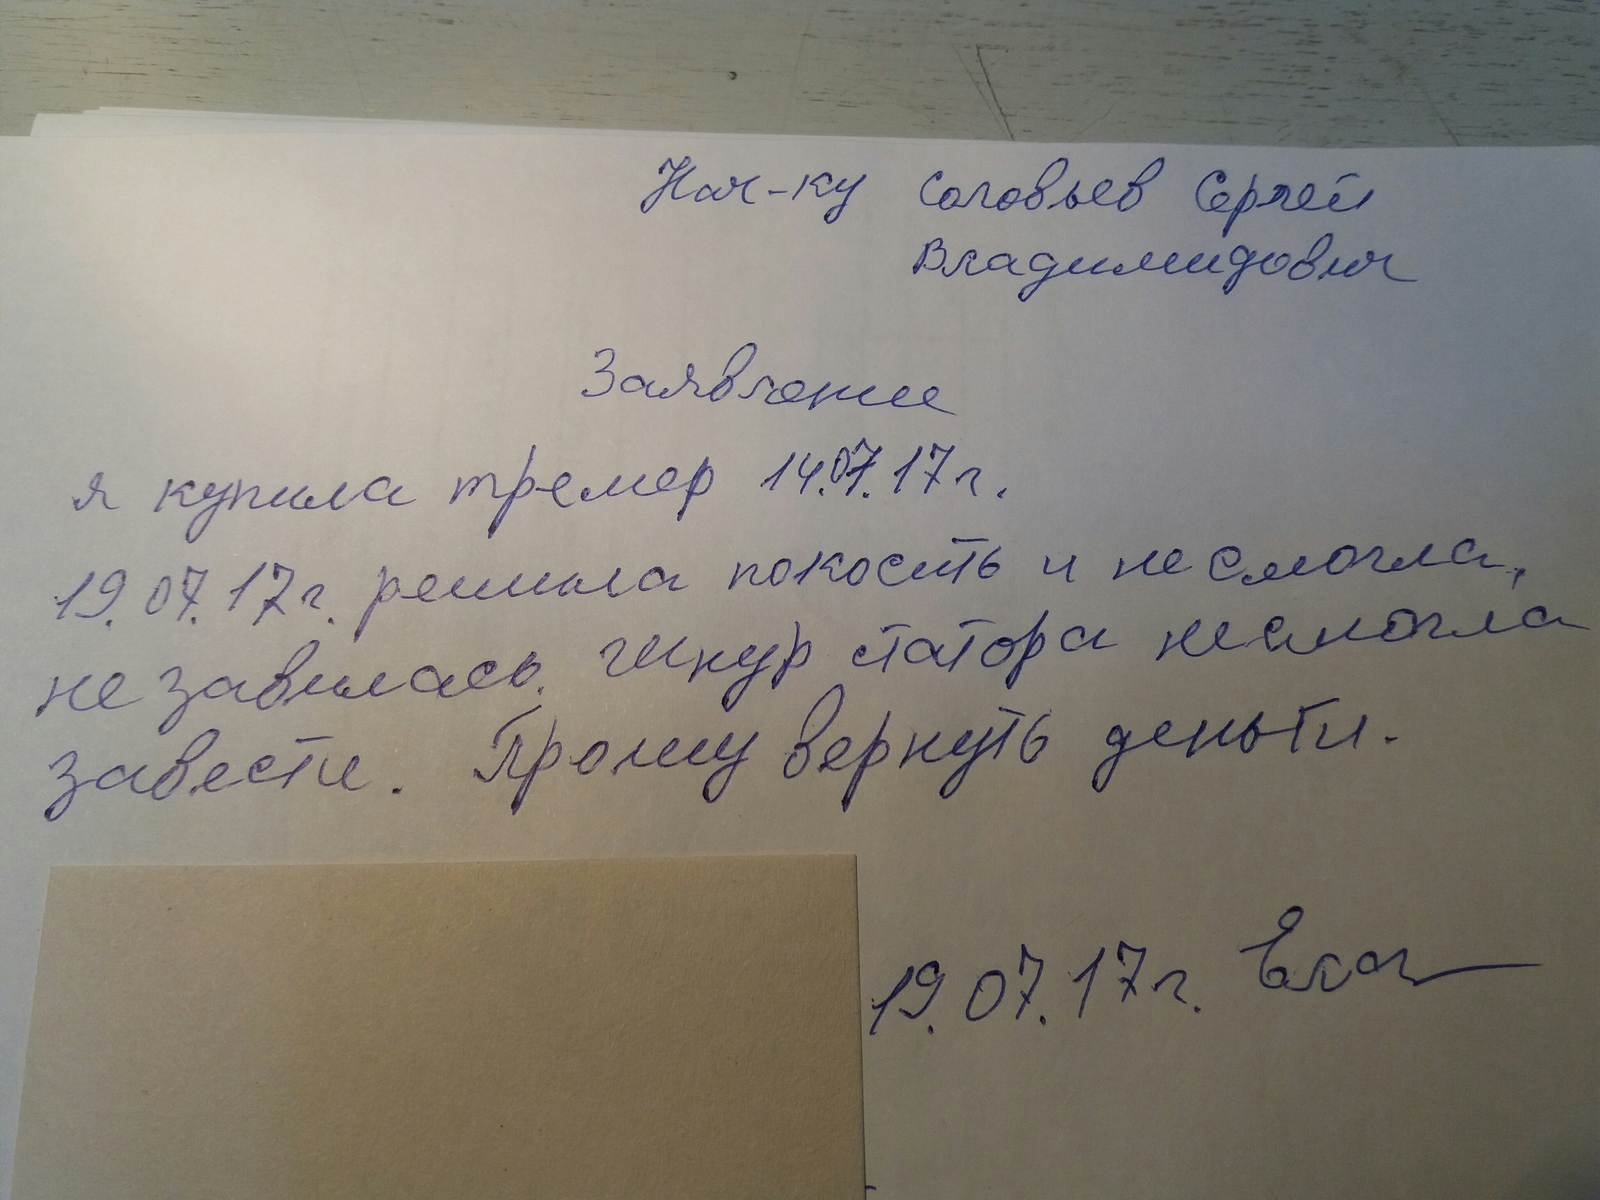 Нач-ку Соловьев Сергей
Владимидович
Заявление
я купила тремер 14.07.17г.
19.07.17г. решила покосить и не смогла,
не завилась. Шнур статора не смогла
завести. Прошу вернуть деньги.
19.07.17г.